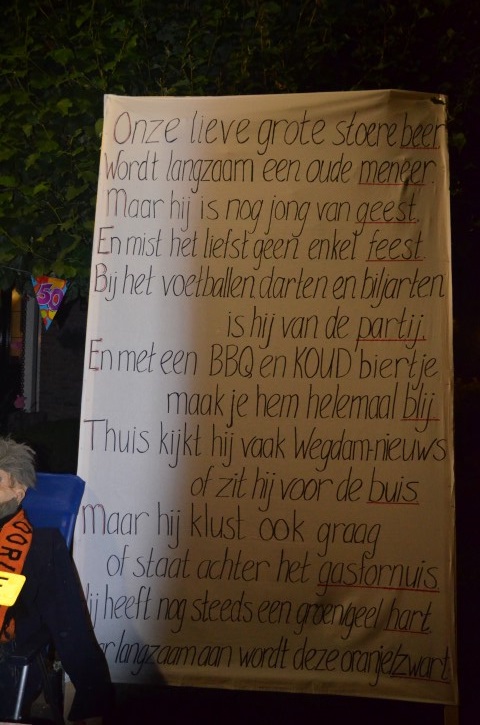 Onze lieve grote stoere beer
Wordt langzaam een oude meneer.
Maar hij is nog jong van geest.
En mist het liefst geen enkel feest.
Bij het voetballen, darten en biljarten
is hij van de partij,
En met een BBQ en KOUD biertje
maak je hem helemaal blij.
Thuis kijkt hij vaak Wegdam-nieuws
of zit hij voor de buis
Maar hij klust ook graag
of staat achter het gasfornuis
heeft nog steeds een groen/geel hart
langzaam aan wordt deze oranje/zwart
50